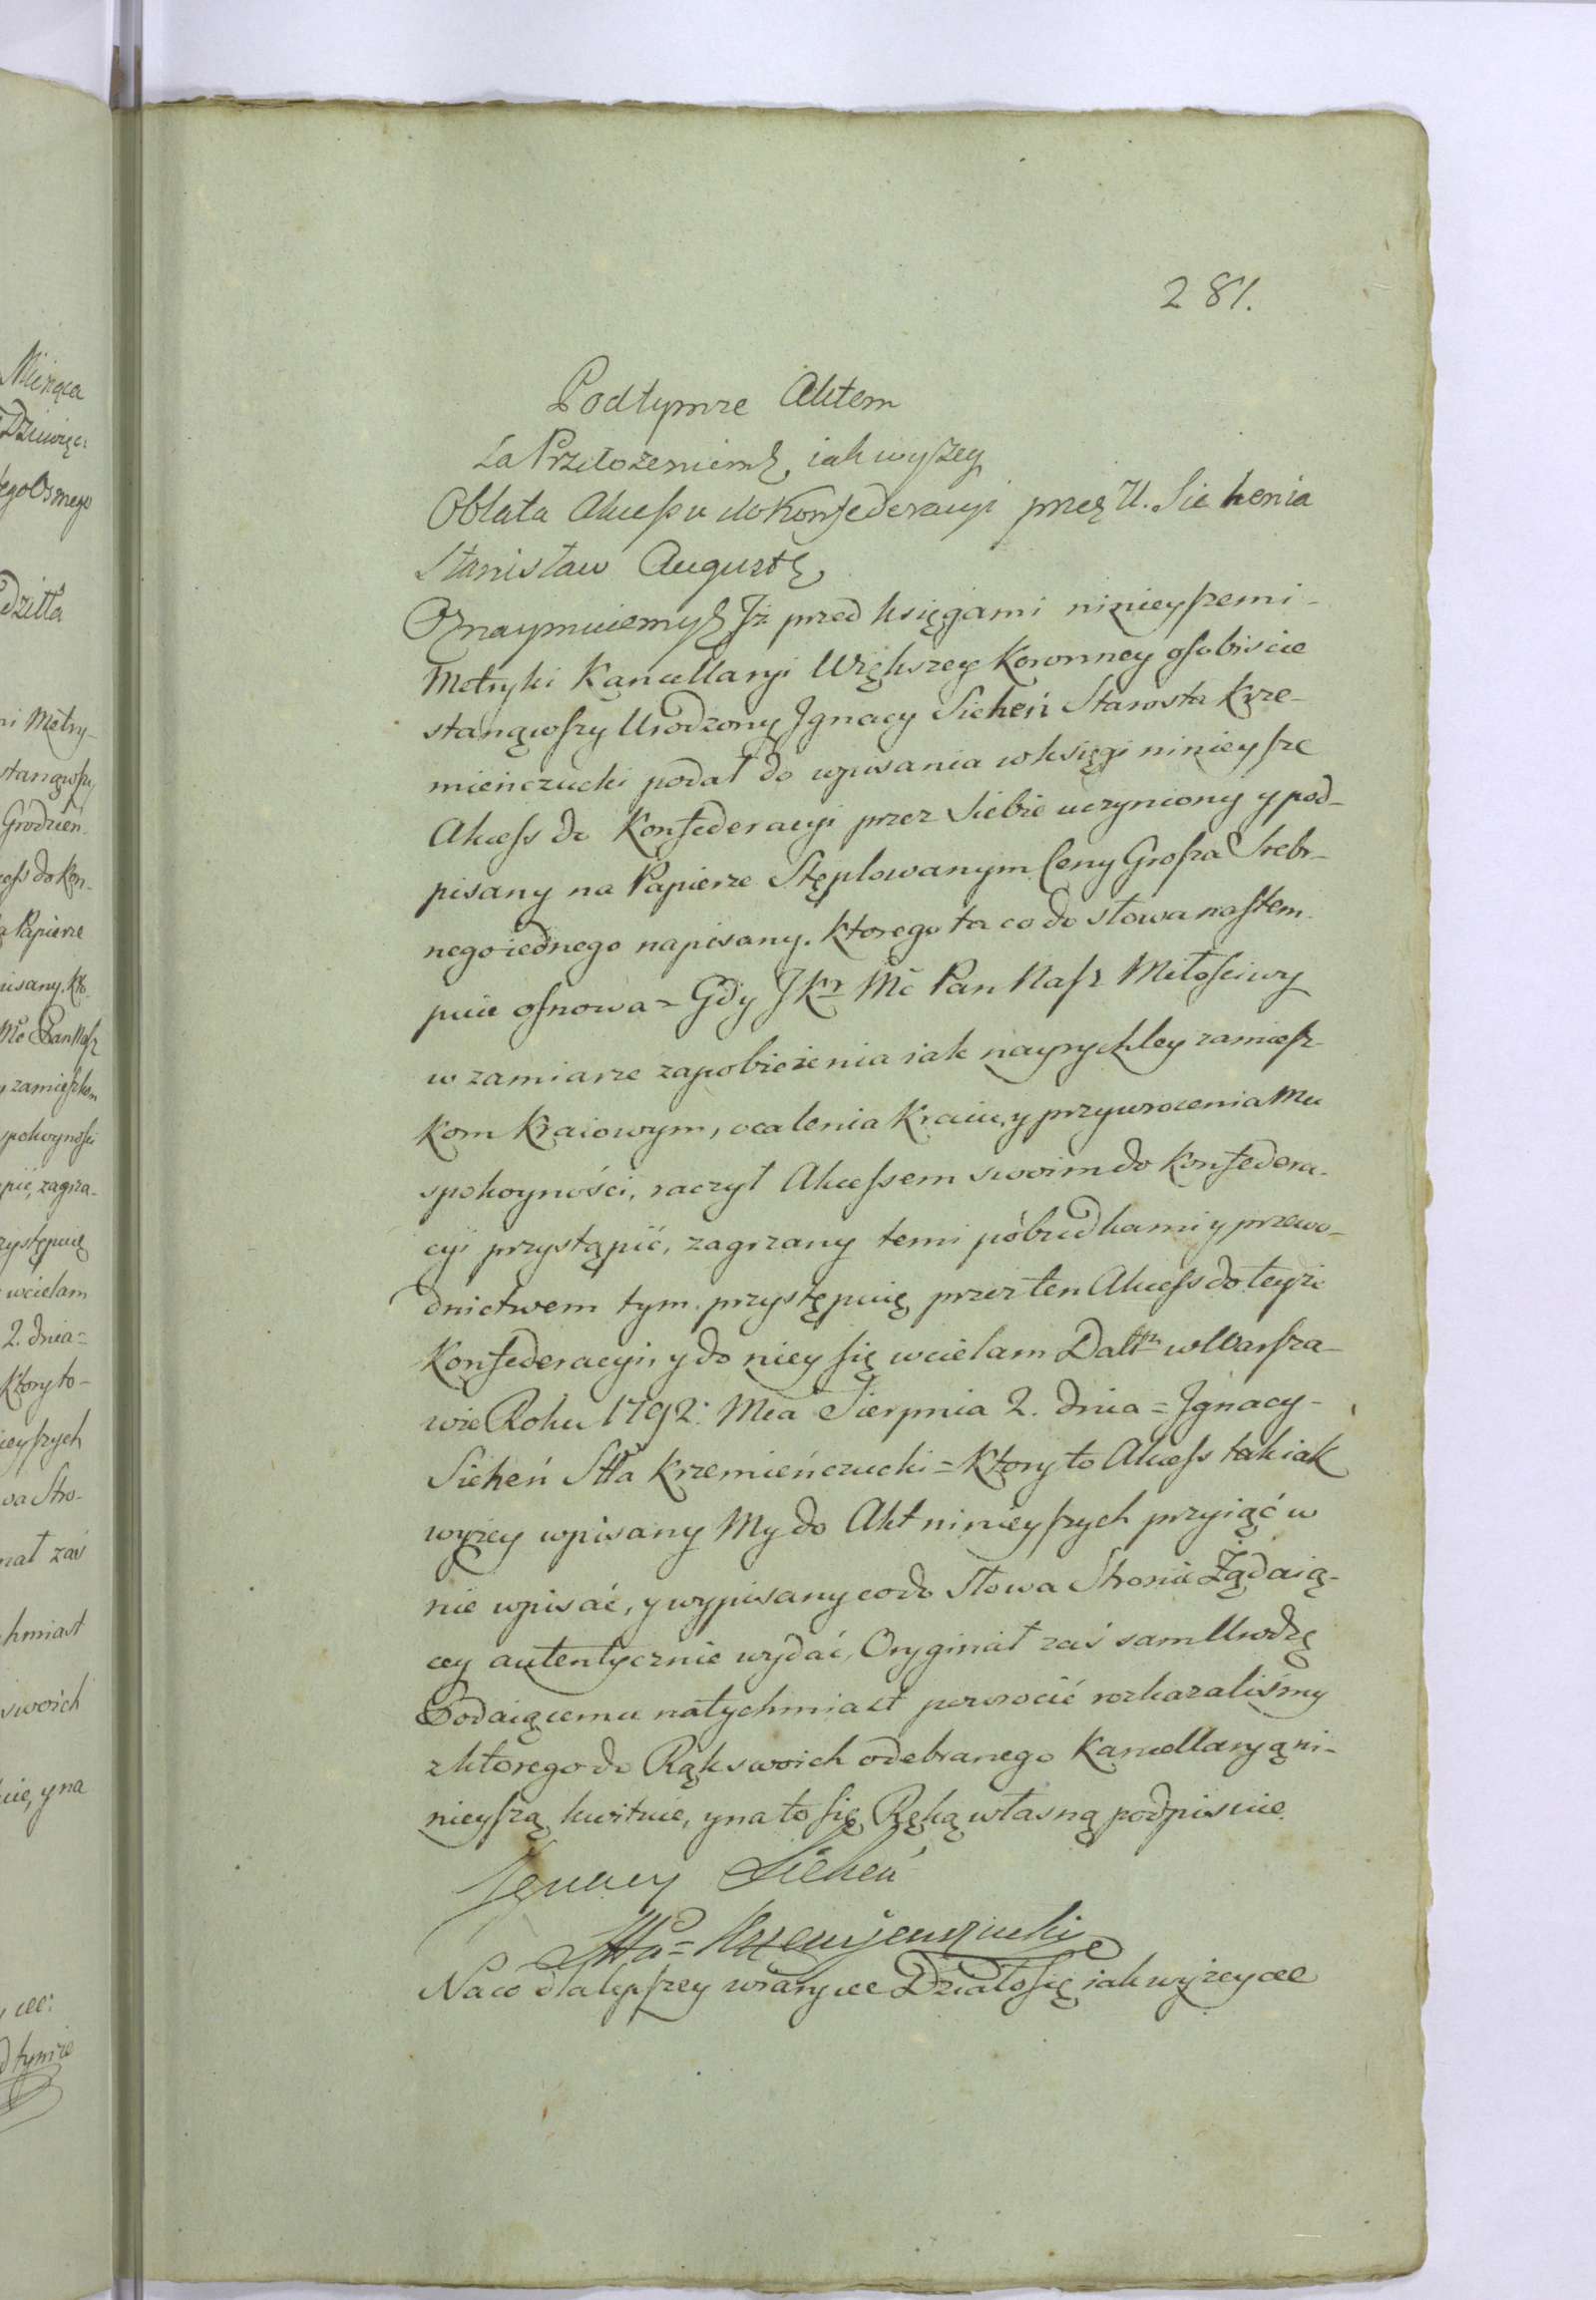 281.
Podtymże Aktem
Za Przełożeniem &, iak wyszey
Oblata Akcessu do Konfederacyi przez U. Siehenia
Stanisław August &,
Oznaymuiemy & Jż przed księgami ninieyszemi-
Metryki Kancellaryi Większey Koronney osobiscie
stanąwszy Urodzony Jgnacy Sieheń Starosta Krze-
mieńczucki podał do wpisania w księgi ninieysze
Akcess do Konfederacyi przez Siebie uczyniony y pod-
pisany na Papierze Stęplowanym Ceny Grosza Srebr-
nego iednego napisany. Ktorego ta co do słowa nastem-
puie osnowa = Gdy JKr Mć Pan Nasz Miłosciwy
w zamiarze zapobieżenia iak nayrychley zamiesz-
kom Kraiowym, ocalenia Kraiu, y przywrocenia Mu
spokoyności, raczył Akcessem swoim do Konfedera-
cyi przystąpić, zagrzany temi póbudkami y przewo-
dnictwem tym. przystępuię przez ten Akcess do teyże
Konfederacyi, y do niey się wcielam Dattm w Warsza-
wie Roku 1792: Mca Sierpnia 2. dnia = Jgnacy-
Sieheń Stta Krzemieńczucki = Ktory to Akcess tak iak
wyżey wpisany My do Akt ninieyszych przyiąć w
nie wpisać, y wypisany co do Słowa Stronie Żądaią-
cey autentycznie wydać, Oryginał zaś sam Urodzę
Podaiącemu natychmiast powrocić rozkazaliśmy
z ktorego do Rąk swoich odebranego Kancellaryą ni-
nieyszą kwituie, y na to się Ręką własną podpisuie
Jgnacy Sieheń
Stta = Krzemjenczucki
Na co dla lepszey wiary ce Działo się iak wyżey ce
Mieńąca
Dziewięć:
ni Metry-
stanąwszy
Grodzień-
Akcess do Kon-
na Papierze
Mć Pan Nasz
y zamieszkom
spokoyności
zagrza-
przystępuię
wcielam
2. dnia =
Ktory to-
nieyszych
zaś
swoich
y na
tymże